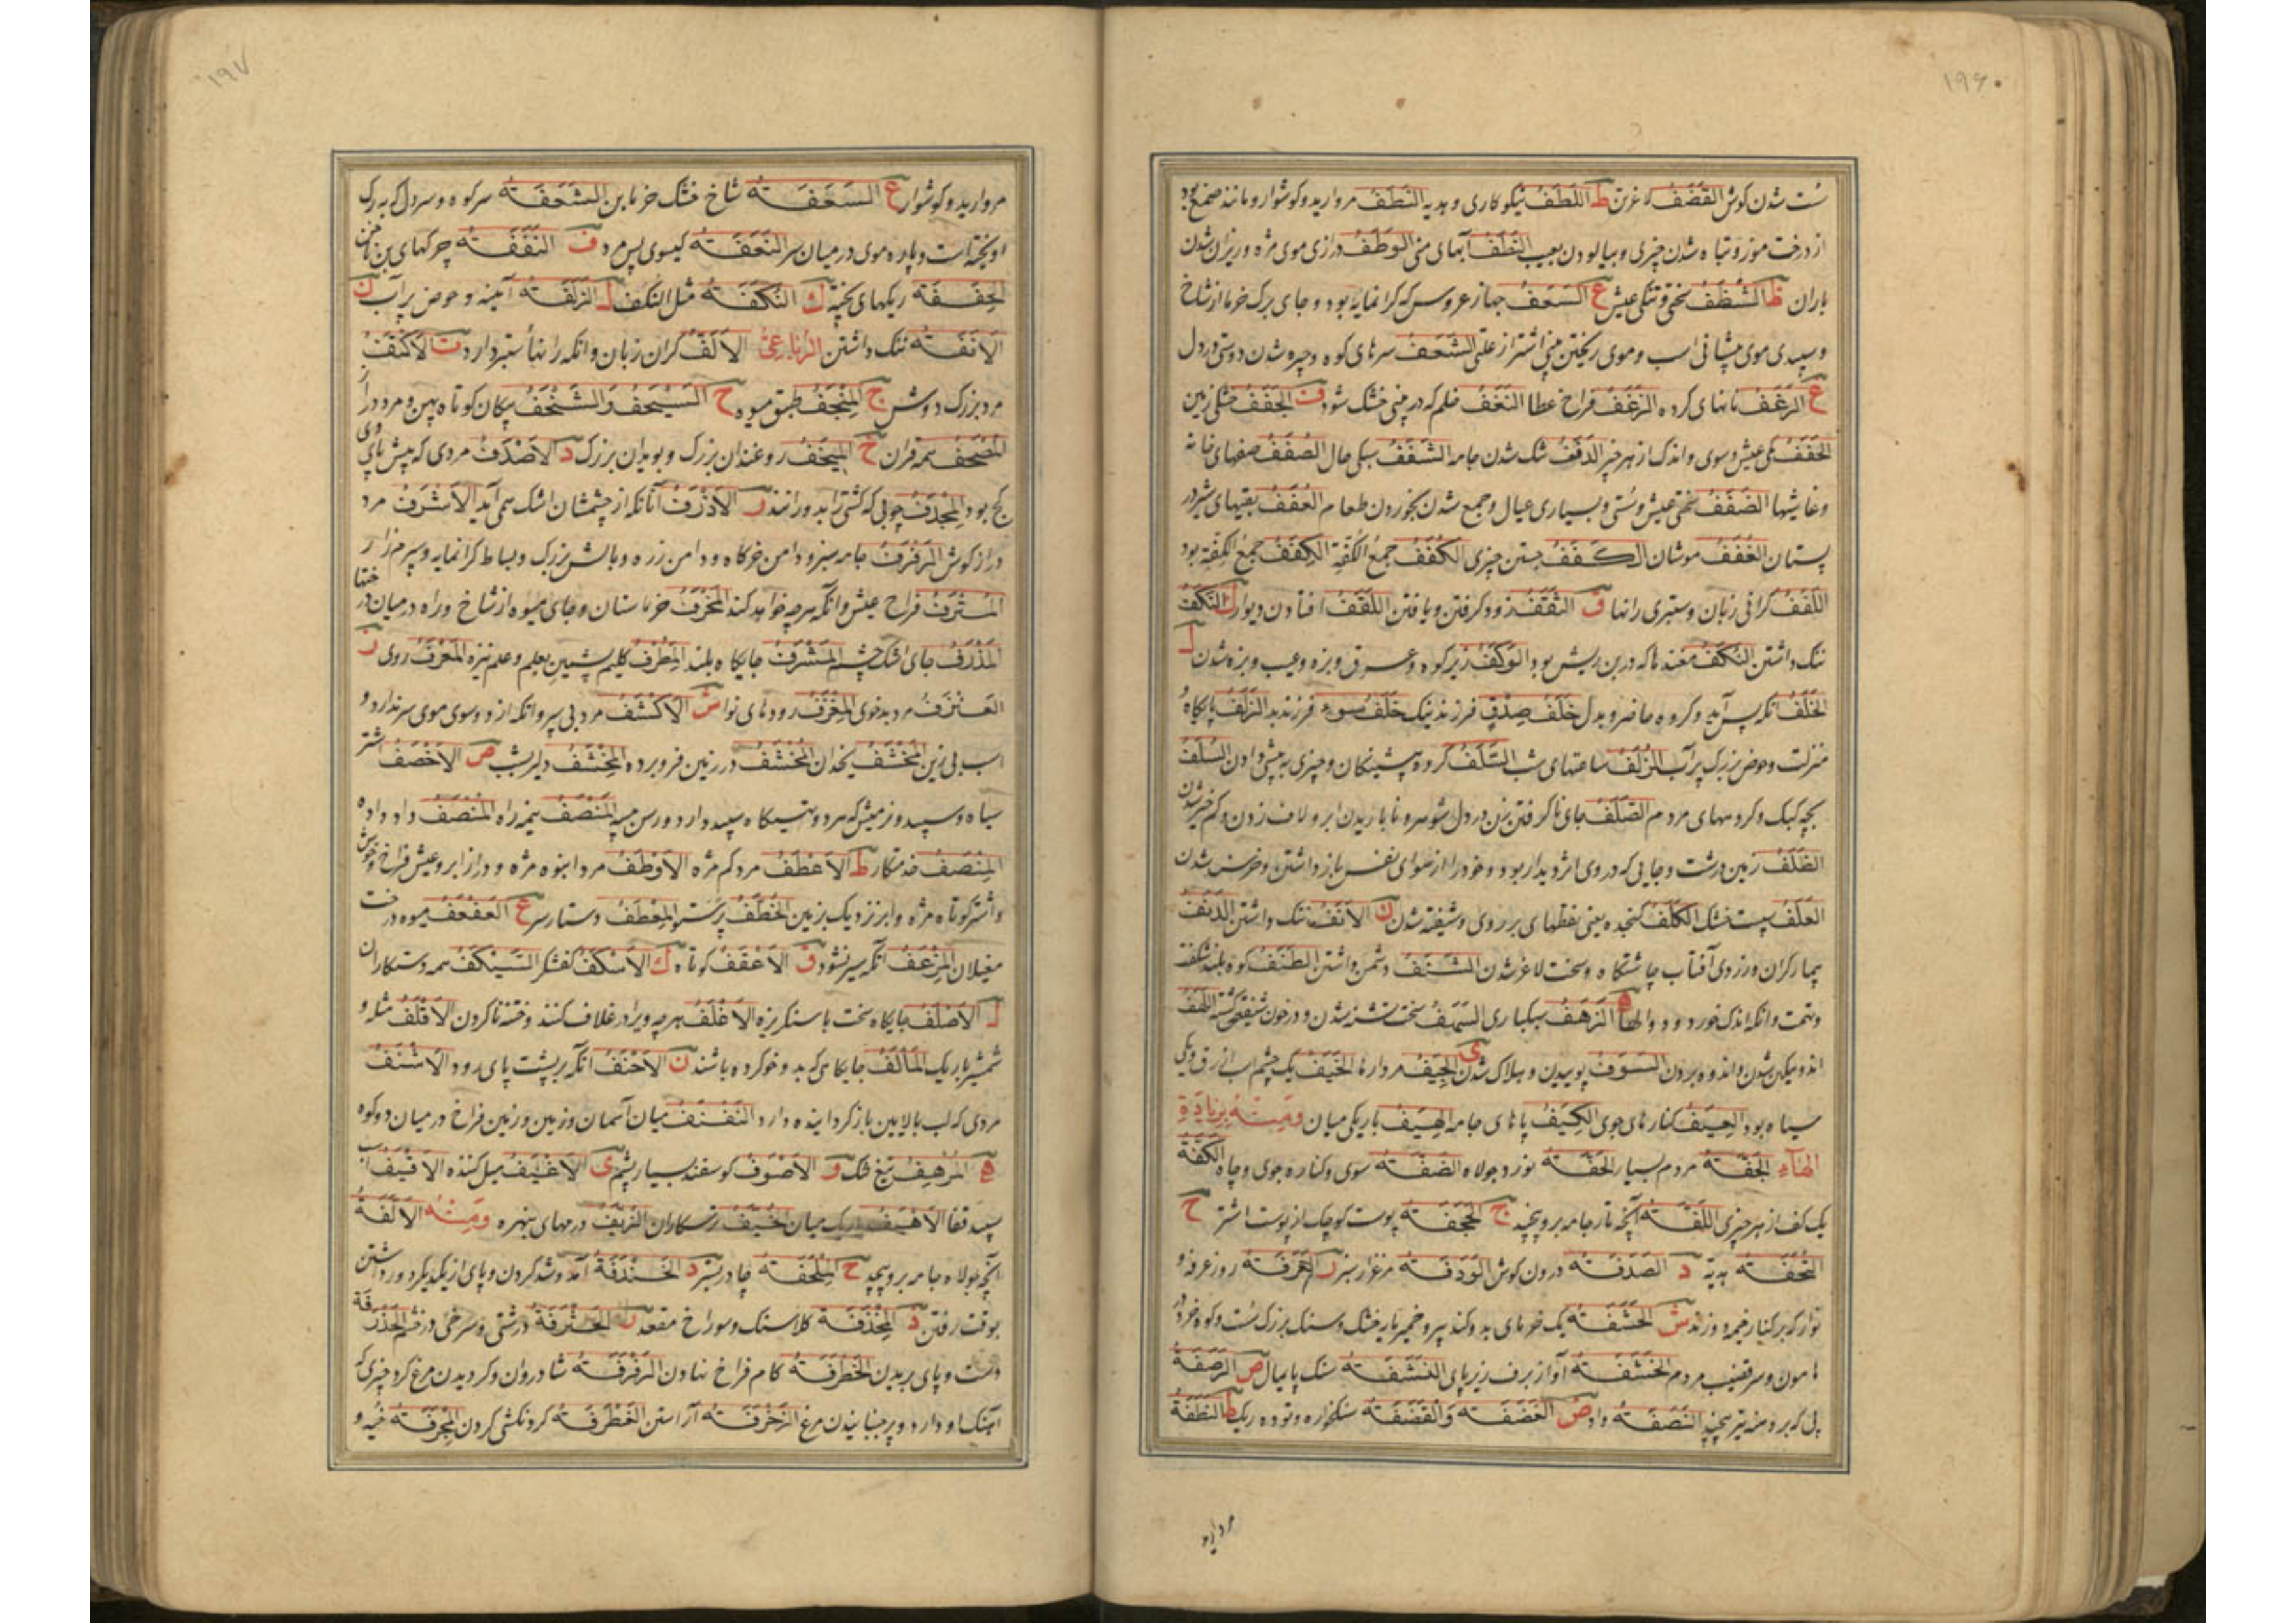 ۱۹۶
سست شدن گوش القضف لاغرتن ط اللطف نیکو کاری و هدیه النطف مروارید و کوشوار و مانند صمغ بود
از درخت موز و تباه شدن چیزی و بیالودن بعیب النطف آبهای منی الوطف درازی موی مژه و ریزان شدن
باران ظ الشظف سختی و تنکی عیش ع السعف جهاز عروس که کرانمایه بود و جای برک خرما از شاخ
و سپیدی موی پیشانی اسب و موی ریختن بینی اشتر از علتی الشعف سرهای کوه و چیره شدن دوستی در دل
غ الرغف نانهای کرده الزغف فراخ عطا النغف خلم که در بینی خشک شود ف الجفف خشکی زمین
الحفف تنکی عیش و سوی و اندک از هر چیز الدفف شک شدن جامه الشفف سبکی حال الصفف صفهای خانه
و غاشیها الضفف سختی عیش و سستی و بسیاری عیال و جمع شدن بخوردن طعام العفف بقیتهای شیر در
پستان الغفف موشان الکفف جستن چیزی الکفف جمع الکفة الکفف جمع الکفة بود
اللفف کرانی زبان و ستبری رانها ق الثقف زود کرفتن و یافتن اللقف افتادن دیوار ک النکف
ننک داشتن النکف غند ها که در بن ریش بود الوکف زیر کوه و عرق و بزه و عیب و بزه شدن ل
الخلف آنکه پس آید و کروه حاضر و بدل خلف صدق فرزند نیک خلف سوء فرزند بد الزلف پایکاه و
منزلت و حوض بزرک پر آب الزلف ساعتهای شب السلف کروه پیشینکان و چیزی به پیشی دادن السلف
بچه کبک و کروههای مردم الصلف جای ناکرفتن بزن در دل شوهر و نا باریدن ابر و لاف زدن و کم خیر شدن
الظلف زمین درشت و جایی که در وی اثر دیدار بود و خود را از هوای نفس باز داشتن و خرسند شدن
العلف سپست خشک الکلف کنجده یعنی نقطهای بر روی و شیفته شدن ن الانف ننک داشتن الدنف
بیمار کران و زردی آفتاب چاشتکاه و سخت لاغر شدن الشنف دشمن داشتن الطنف کوه بلند شکفته
و تهمت و آنکه اندک خورد و و والها ه الزهف سبکباری السهف سخت تشنه شدن و در خون شیفته کشته اللهف
اندوهکین شدن و اندوه بردن السوف پوییدن و هلاک شدن ی الجیف مردارها الخیف یک چشم اسب ازرق و یکی
سیاه بود العیف کنارهای جوی الکیف پاهای جامه الهیف باریکی میان ومنه بزیادة
الهاء الجفة مردم بسیار الحفة نورد جولاه الضفة سوی و کناره جوی و چاه الکفة
یک کف از هر چیزی اللفة آنچه تار جامه برو پیچند ج الحجفة پوست کوچک از پوست اشتر ح
التحفة هدیه د الصدفة درون کوش الودفة مرغزار سبز ر العرفة روز عرفه و
نوار که بر کنار خیمه دوزند ش الحشفة یک خرمای بد و کند پیر و خمیر مایه خشک و سنک بزرک سست و کوه خرد در
هامون و سر قضیب مردم الخشفة آواز برف زیر پای النشفة سنک پایمال ص الرصفة
پی که بر دهنه تیر پیچند النصفة داد ض الغضفة والقضفة سنکخواره و توده ریک ط النطفة
مروارید
۱۹۷
مروارید و کوشوار ع السعفة شاخ خشک خرما بن الشعفة سر کوه و سر دل که به رک
اویخته است و پاره موی در میان سر النعفة کیسوی پس مرد ف النففة چرکهای بن ناخن
الحقفة ریکهای پخته ک النکفة مثل النکف ل الزلفة آینه و حوض پر آب ن
الانفة ننک داشتن الرباعی الالف کران زبان و آنکه رانهاء ستبر دارد ت الاکتف
مرد بزرک دوش ج المنجف طبق میوه ح السیحف والشنحف پیکان کوتاه پهن و مرد دراز
المصحف همه قرآن خ المیخف روغندان بزرک و بویدان بزرک د الاصدف مردی که پیش پای وی
کج بود المجدف چوبی که کشتی را بدو رانند ر الاذرف آنانکه از چشمشان اشک همی آید الاشرف مرد
دراز کوش الرفرف جامه سبز و دامن خرکاه و دامن زره و بالش بزرک و بساط کرانمایه و سپرم زار
المترف فراخ عیش و آنکه هرچه خواهد کند المخرف خرماستان و جای میوه از شاخ و راه در میان درختها
المذرف جای اشک چشم المشرف جایکاه بلند المطرف کلیم پشمین بعلم و علم نیزه المعرف روی ز
العتزف مرد بدخوی المعزف رودهای نوا ش الاکشف مرد بی سپر و آنکه از دو سوی موی سر ندارد و
اسب بی زین المخشف یخدان المخشف در زمین فرو برده المخشف دلیر بشب ص الاخصف اشتر
سیاه و سپید و نر میش که هر دو تهیکاه سپید دارد و رسن سیه المنصف نیمه راه المنصف داد داده
المنصف خدمتکار ط الاغطف مرد کم مژه الاوطف مرد انبوه مژه و دراز ابرو و عیش فراخ و خوش
و اشتر کوتاه مژه و ابر نزدیک بزمین الخطف پرستو المعطف دستار سر ع العفعف میوه درخت
مغیلان المزعف آنکه سیر نشود ق الاعقف کوتاه ک الاسکف کفشکر السیکف همه دستکاران
ل الاصلف جایکاه سخت با سنکریزه الاغلف هرچه ویرا در غلاف کنند و ختنه ناکرده الاقلف مثله و
شمشیر باریک المالف جایکاهی که بدو خو کرده باشند ن الاحنف آنکه بر پشت پای رود الاشنف
مردی که لب بالایین باز کردانیده دارد النفنف میان آسمان و زمین و زمین فراخ در میان دو کوه
ه المرهف تیغ تنک و الاصوف کوسفند بسیار پشم ی الاغیف میل کننده الاقیف اسب
سپید قفا الاهیف باریک میان الخیف ترسکاران الزیف درمهای نبهره ومنه الالفة
آنچه جولاه جامه برو پیچد ح الملحفة چادر بستر د الخندفة آمد و شد کردن و پای از یکدیکر دور داشتن
بوقت رفتن ذ المخذفة کلاسنک و سوراخ مقعد ر الحترفة درشتی و سرخی در چشم الخذرفة
دست و پای بریدن الخطرفة کام فراخ نهادن الرفرفة شادروان و کردیدن مرغ کرد چیزی که
آهنک او دارد و پر جنبانیدن مرغ الزخرفة آراستن الغطرفة کردنکشی کردن المجرفة خیه و